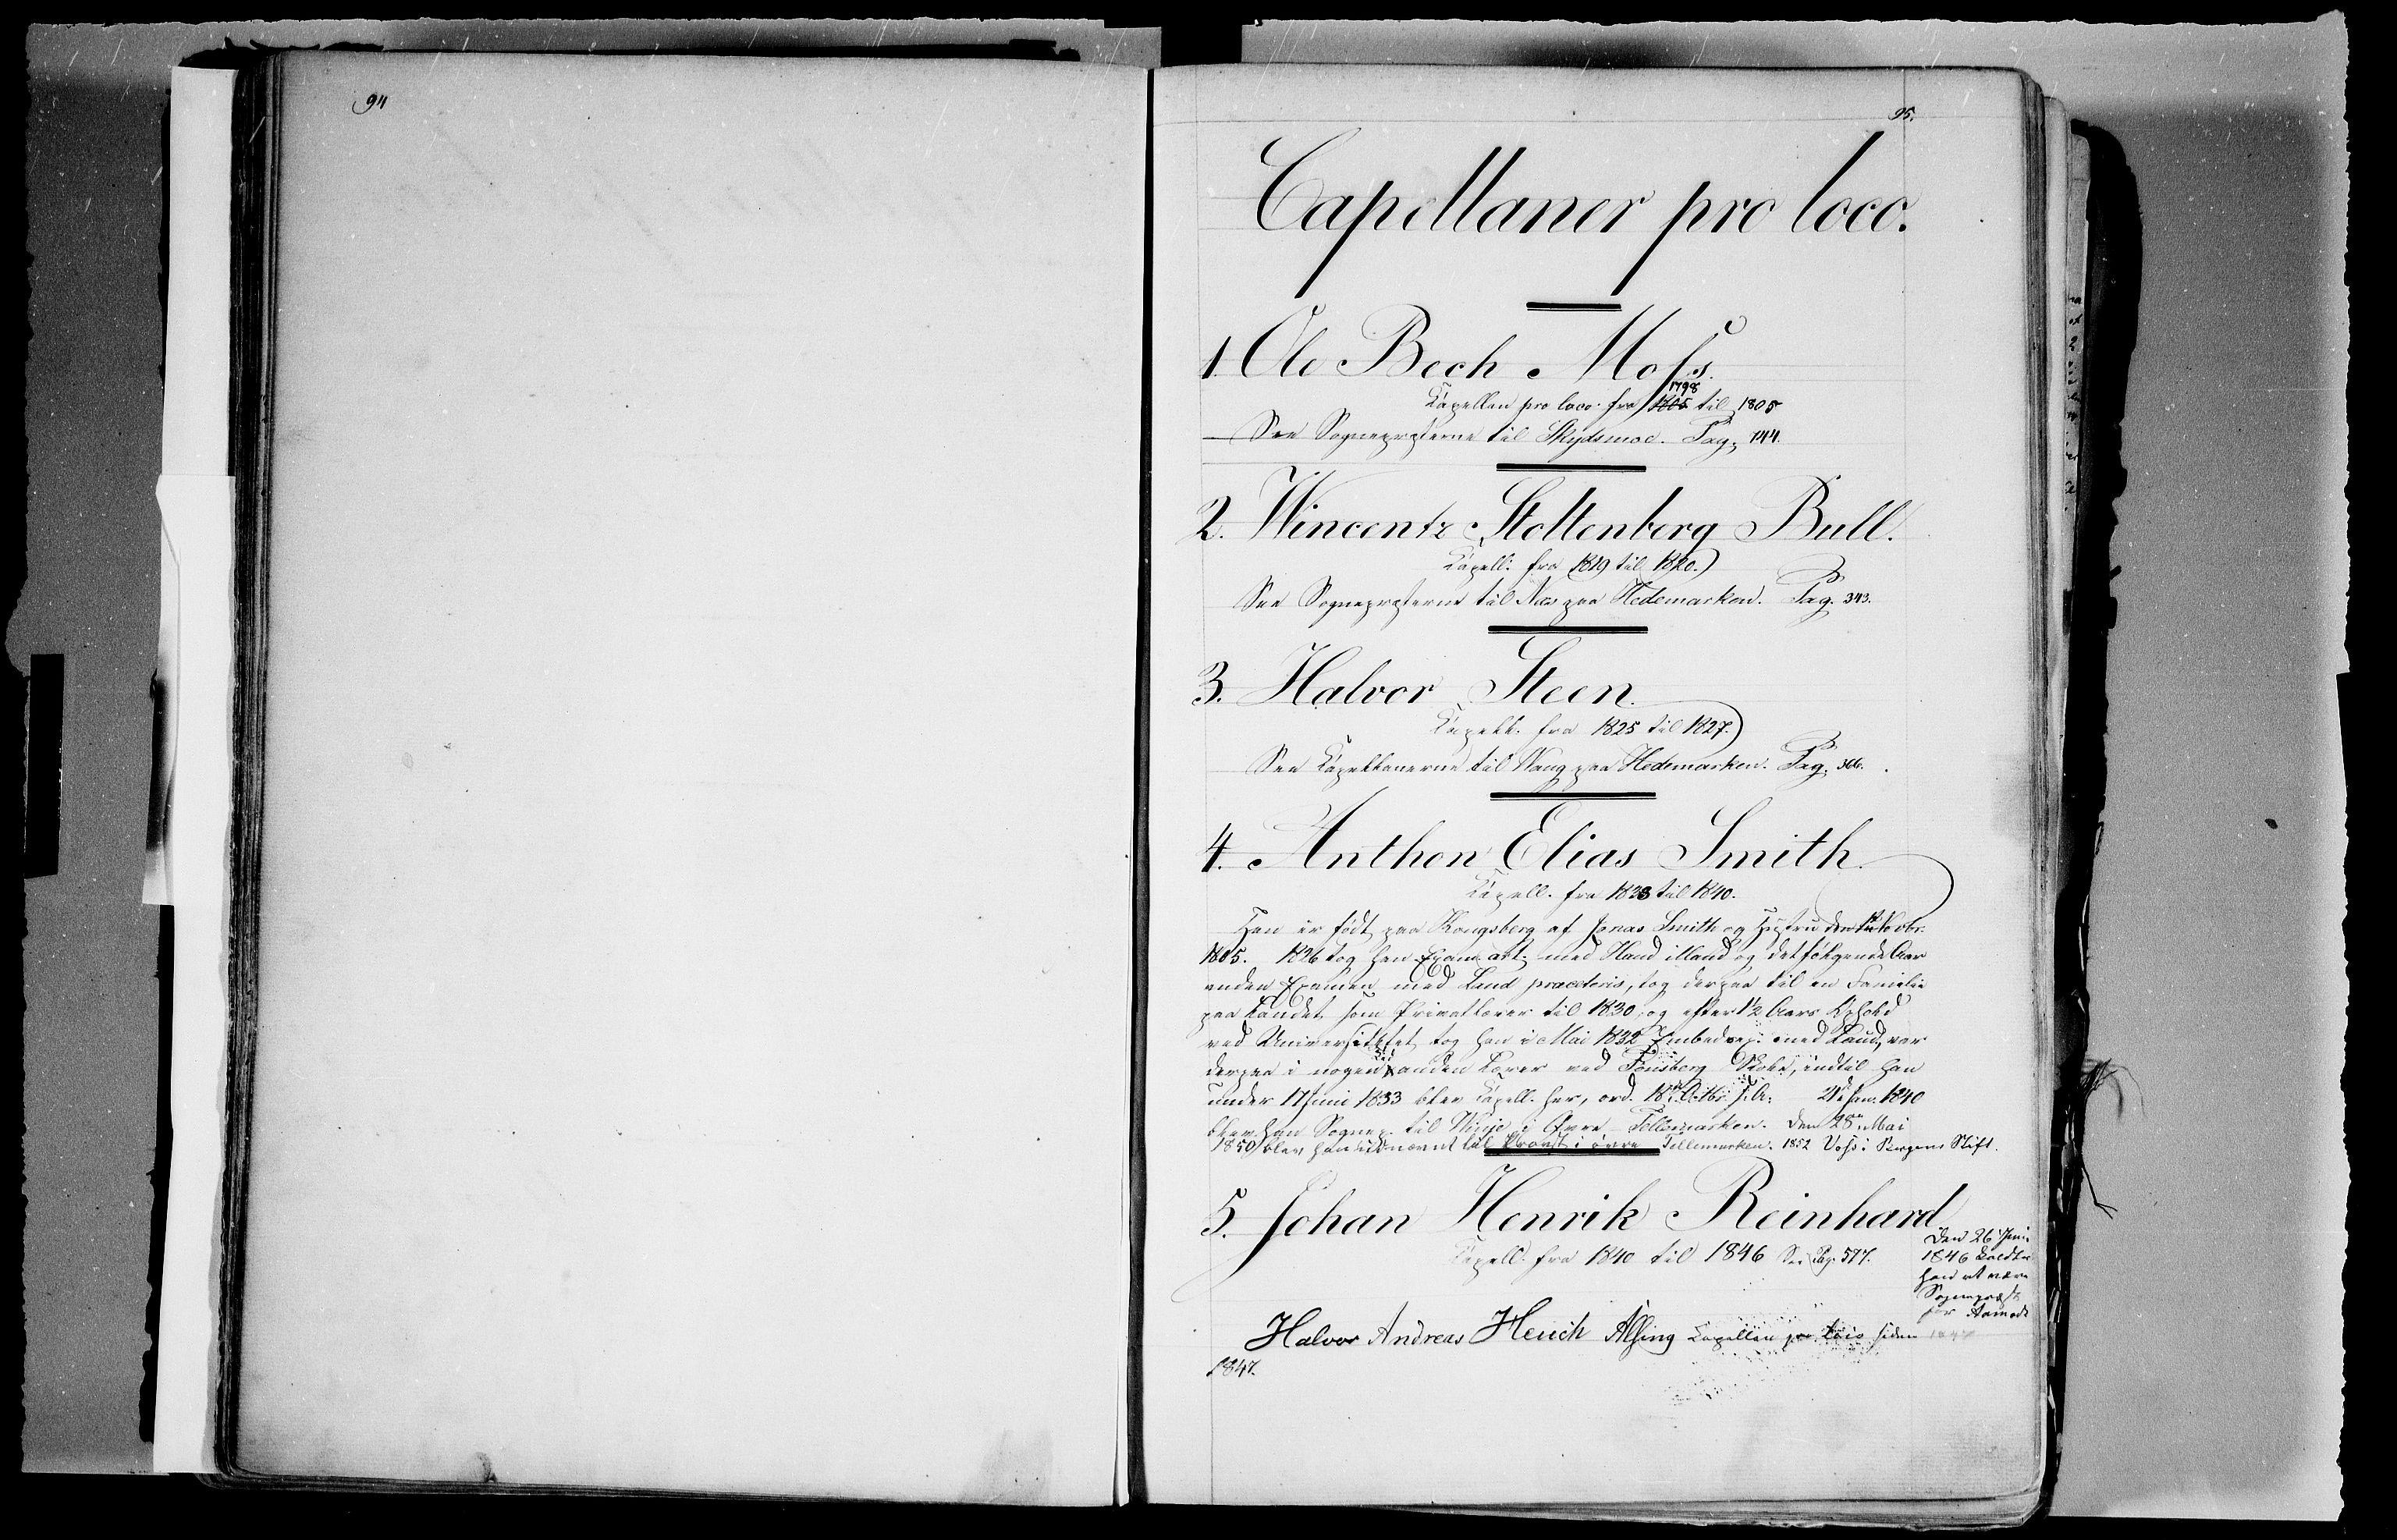 94
95.
Capellaner pro loco.
1. Ole Bech Moss.
1798
Capellan pro loco fra 1805 til 1805
See Sognepræsterne til Skydsmoe. Pag. 144.
2. Wincentz Stoltenberg Bull.
Capell. fra 1819 til 1820.
See Sognepræsterne til Næs paa Hedemarken. Pag. 343.
3. Halvor Steen.
Capell. fra 1825 til 1827.
See Capellanerne til Vang paa Hedemarken. Pag. 366.
4. Anthon Elias Smith.
Capell. fra 1833 til 1840.
Han er født paa Kongsberg af Jonas Smith og Hustru den Octobr.
1805. 1826 tog han Exam. art. med Haud illaud og det følgende Aar
anden Examen med Laud præceteris, tog derpaa til en Familie
paa Landet som Privatlærer til 1830, og efter 1½ Aars Ophold
ved Universitetet tog han i Mai 1832 Embedsex. med Laud, var
derpaa i nogen Tid anden Lærer ved Tønsberg Skole, indtil han
under 17 Juni 1833 blev Capell. her, ord. 18 Octbr. s. A. 21 Jan. 1840
blev han Sognep. til Vinje i Øvre Tellemarken. Den 28 Mai
1850 blev han udnævnt til Provst i øvre Tellemarken. 1852 Voss i Bergens Stift.
5. Johan Henrik Reinhard
Capell. fra 1840 til 1846 See Pag. 577.
Den 26 Juni
1846 kaldtes
han at være
Sognepræst
for Aamodt
Halvor Andreas Heuch Alsing Capellan pro loco siden 1847
1847.